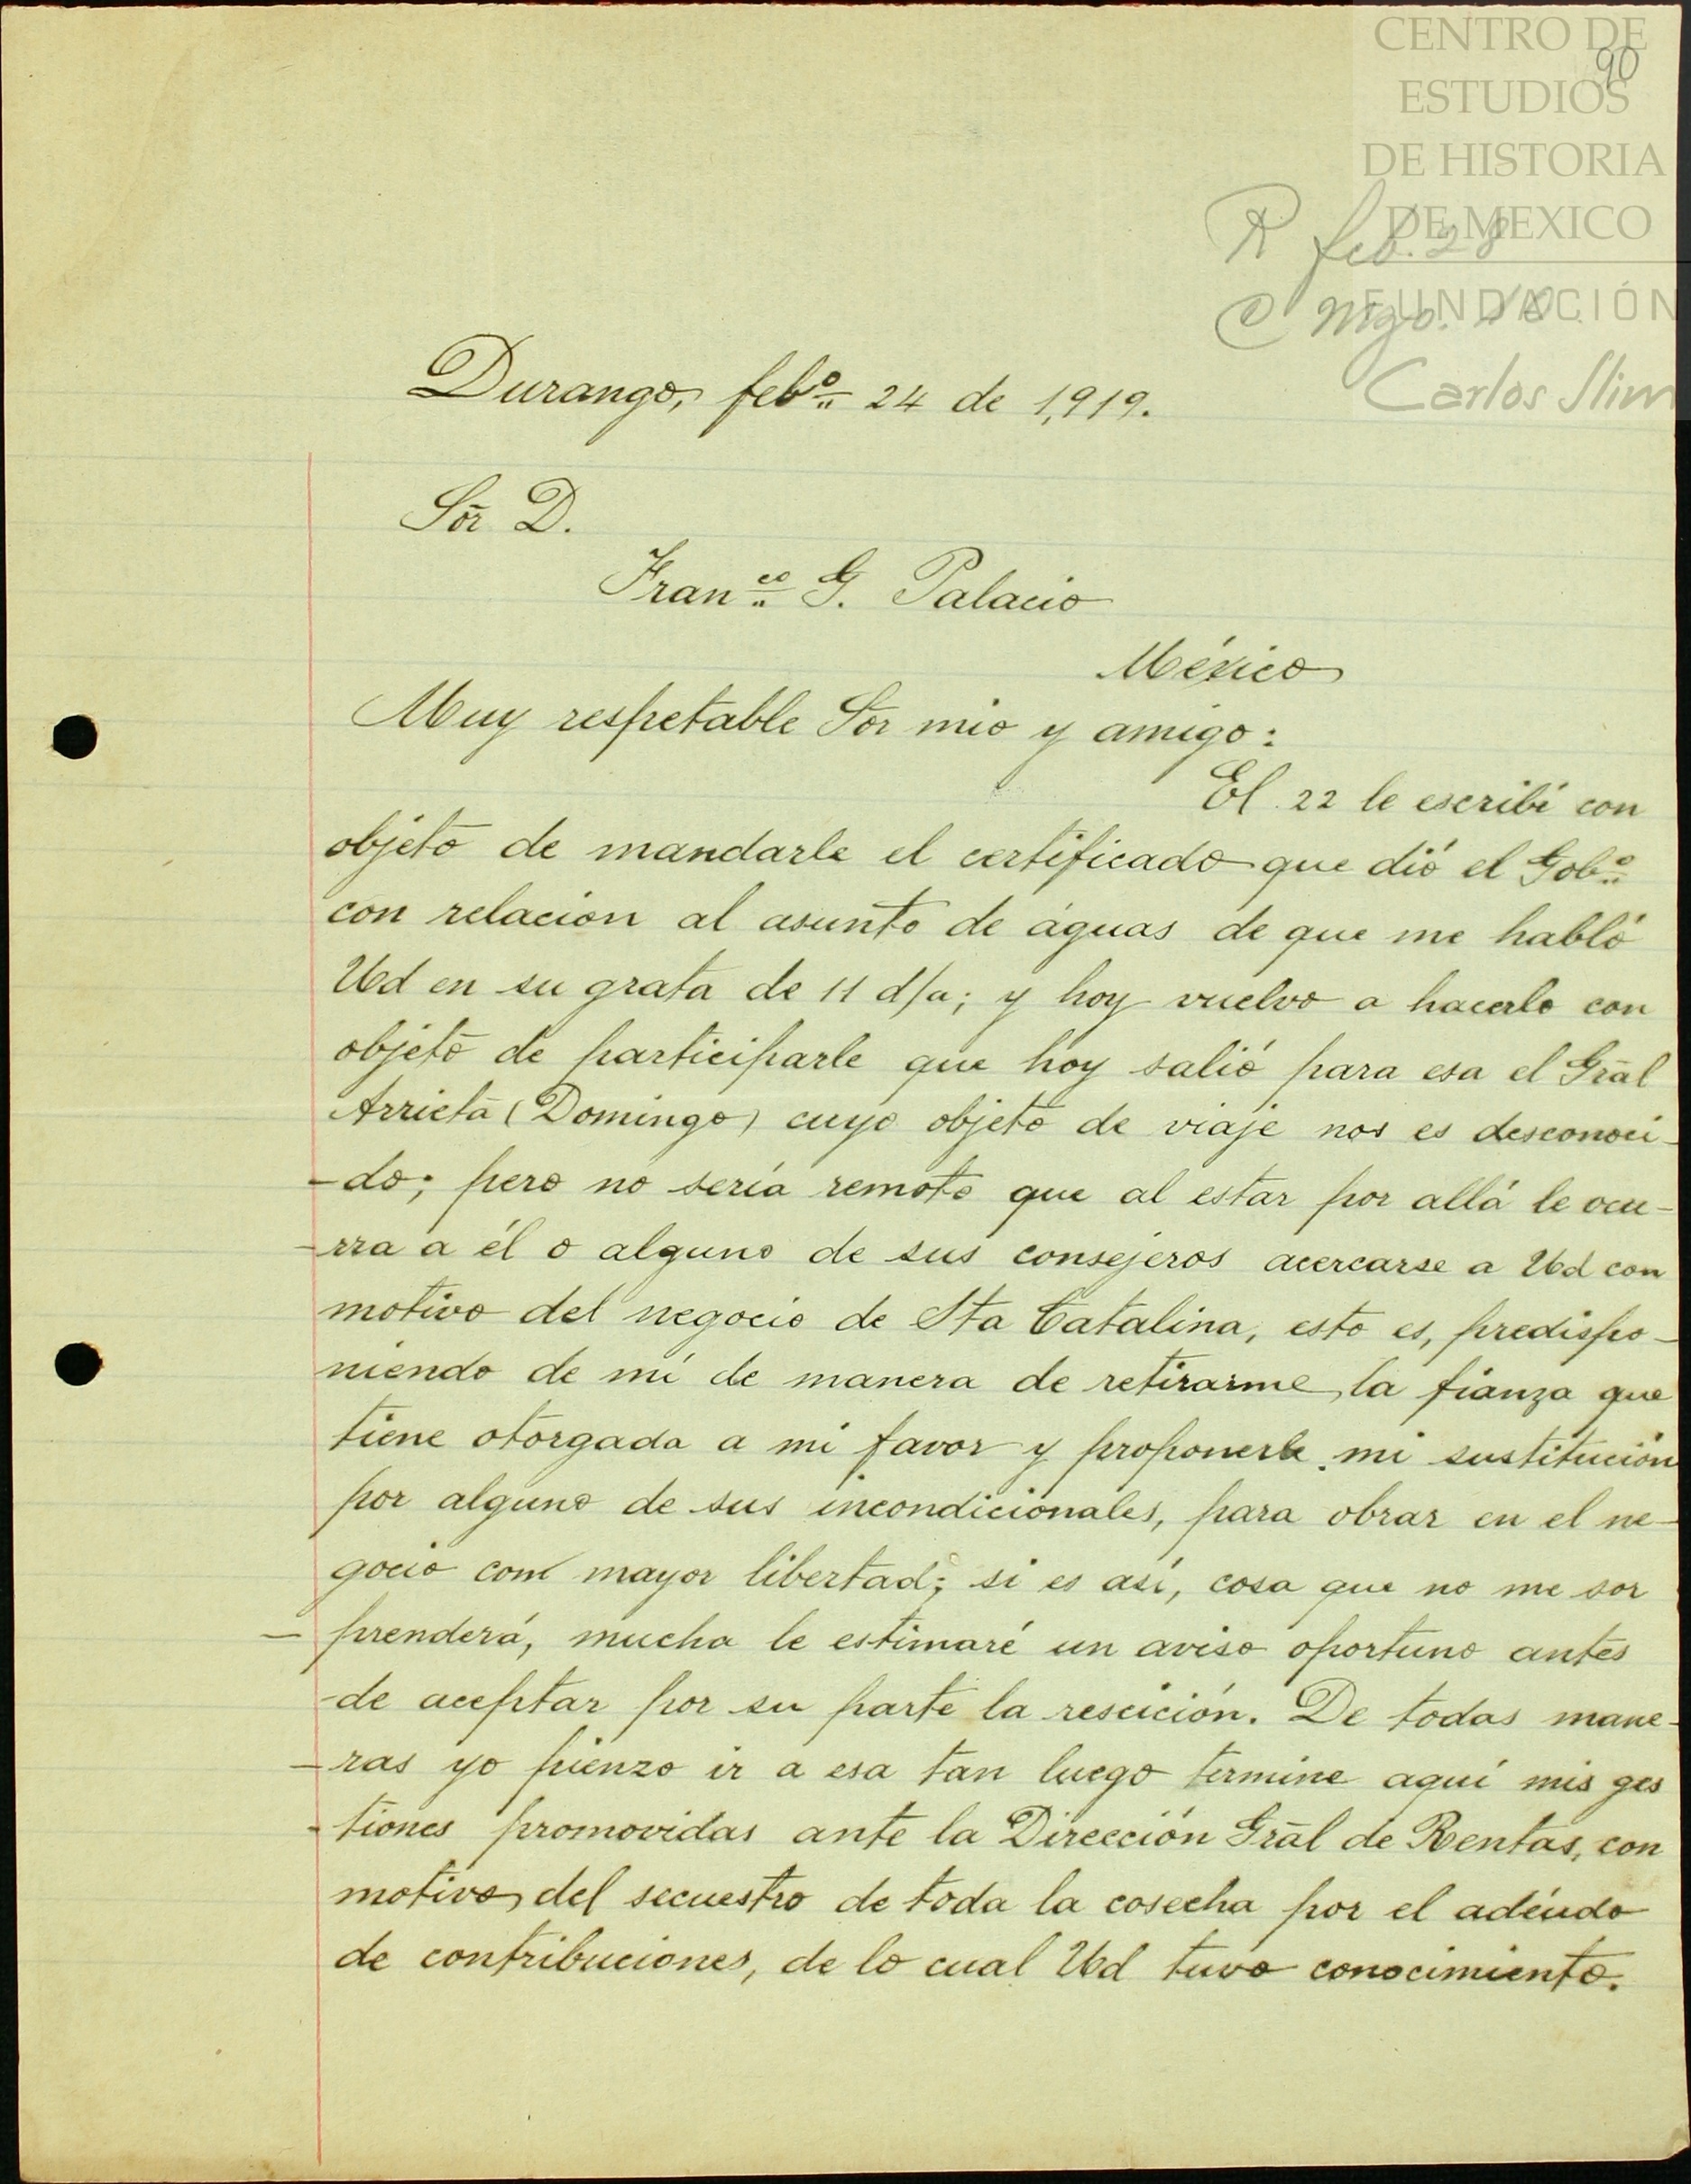 CENTRO DE
90
ESTUDIOS
DE HISTORIA
DE MEXICO
R feb. 28
FUNDACIÓN
C Mzo.
Carlos Slim
Durango, feb.º 24 de 1,919.
Sōr D.
Fran.co G. Palacio
México
Muy respetable Sor mio y amigo:
El 22 le escribí con
objeto de mandarle el certificado que dió el Gob.º
con relacion al asunto de aguas de que me habló
Ud en su grata de 11 d/a; y hoy vuelvo a hacerlo con
objeto de participarle que hoy salió para esa el Grāl
Arrieta (Domingo) cuyo objeto de viaje nos es desconoci-
-do; pero no sería remoto que al estar por allá le ocu-
-rra a él o alguno de sus consejeros acercarse a Ud con
motivo del negocio de Sta Catalina, esto es, predispo-
niendo de mí de manera de retirarme la fianza que
tiene otorgada a mi favor y proponerle mi sustitución
por alguno de sus incondicionales, para obrar en el ne-
gocio con mayor libertad; si es así, cosa que no me sor
- prenderá, mucha le estimaré un aviso oportuno antes
-de aceptar por su parte la rescición. De todas mane-
-ras yo pienzo ir a esa tan luego termine aquí mis ges
-tiones promovidas ante la Dirección Grāl de Rentas, con
motivo del secuestro de toda la cosecha por el adéudo
de contribuciones, de lo cual Ud tuvo conocimiento.